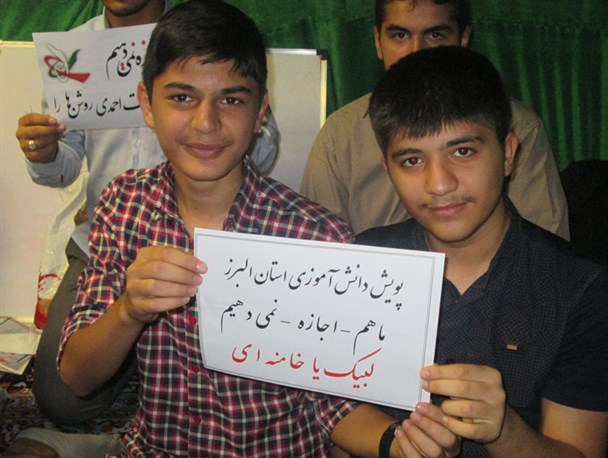 پویش دانش آموزی استان البرز
ما هم - اجازه - نمی دهیم
لبیک یا خامنه ای
نمی دهیم
احمدی روشن ها را